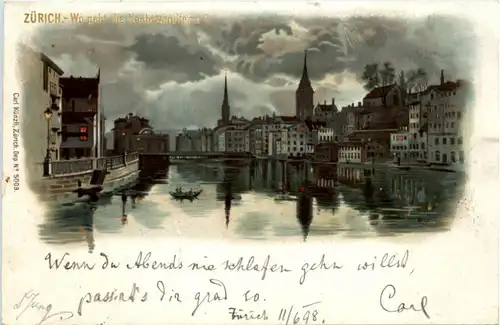 ZÜRICH.-Wo geht die
Carl Künzli, Zürich. Dep. No 5003.
Wenn du Abends nie schlafen gehn willst,
passirt's dir grad so. Carl
Zürich 11/6 98.
S. Jung